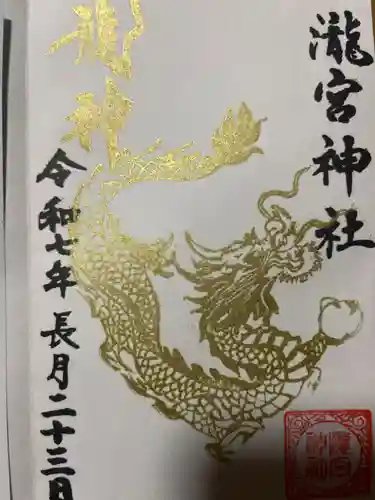 瀧宮神社
龍神
令和七年長月二十三日